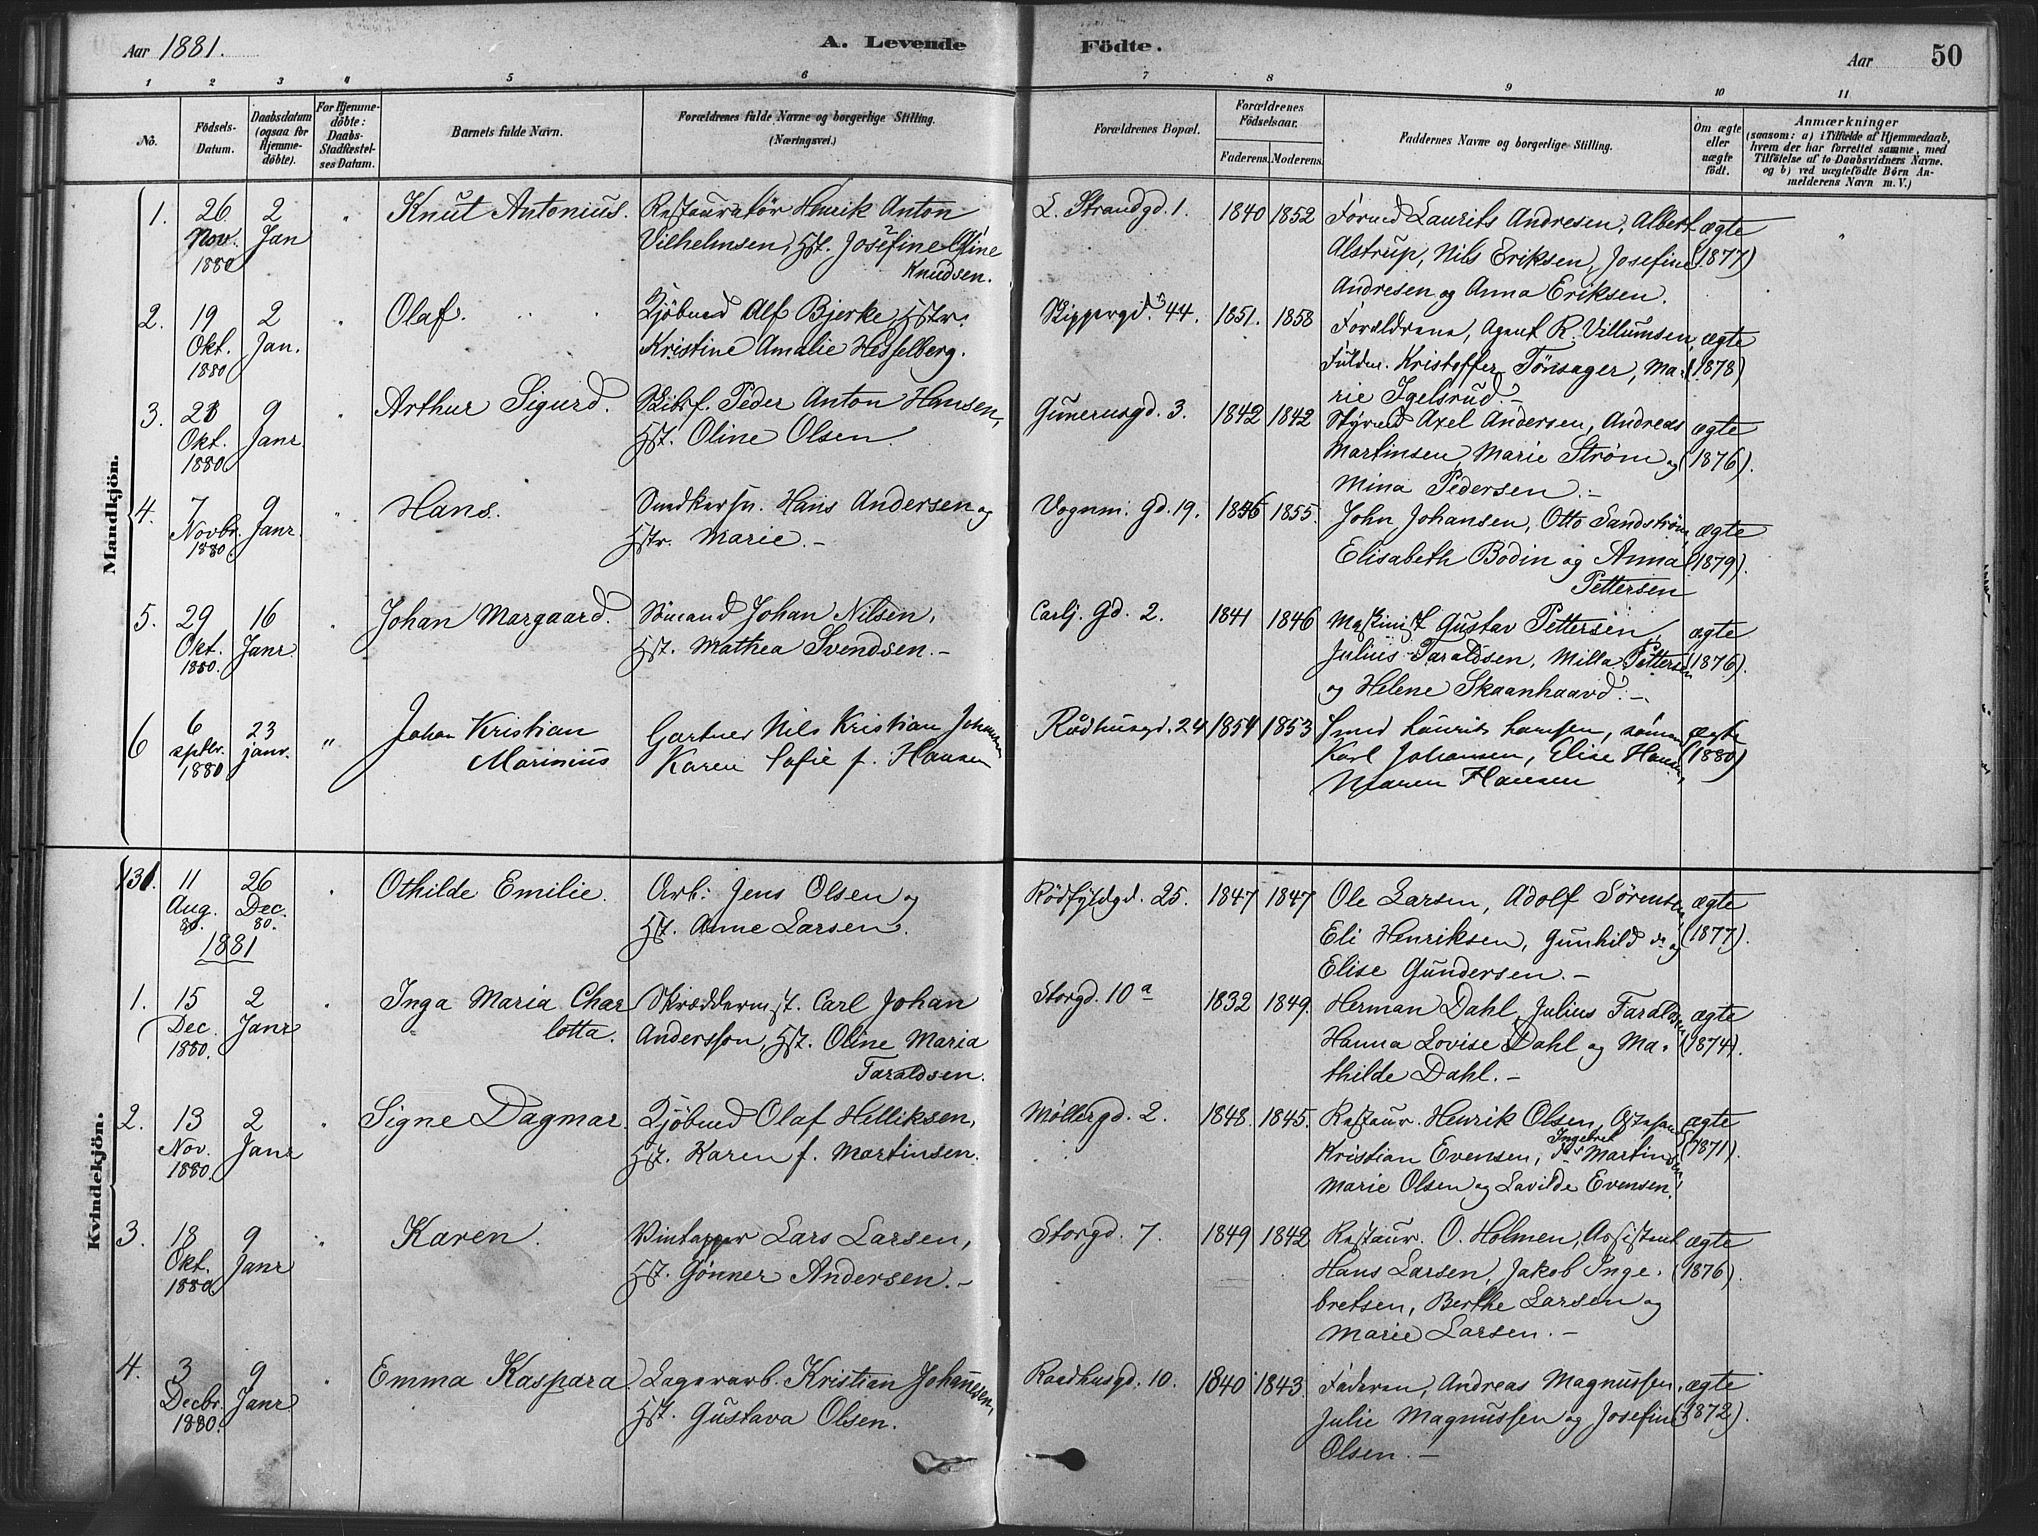 Aar 1881.
A. Levende Födte.
Aar 50
1 2 3 4 5 6 7 8 9 10 11
No.
Födsels-Datum.
Daabsdatum (ogsaa for Hjemme-döbte).
For Hjemme-döbte: Daabs-Stadfæstel-ses Datum.
Barnets fulde Navn.
Forældrenes fulde Navne og borgerlige Stilling. (Næringsvei.)
Forældrenes Bopæl.
Forældrenes Födselsaar.
Faderens. Moderens.
Faddernes Navne og borgerlige Stilling.
Om ægte eller uægte födt.
Anmærkninger
(saasom: a) i Tilfælde af Hjemmedaab, hvem der har forrettet samme, med Tilföielse af to Daabsvidners Navne. og b) ved uægtefödte Börn An-melderens Navn m. V.)
Mandkjön.
1. 26 Nov. 1880 2 Jan " Knut Antonius. Restauratør Henrik Anton
Vilhelmsen, Hst. Josefine Gine
Knudsen.
L. Strandgd. 1. 1840 1852 Formd Laurits Andresen, Albert
Alstrup, Nils Eriksen, Josefine
Andresen og Anna Eriksen.
ægte (1877) "
2. 19 Okt. 1880 2 Jan. " Olaf. Kjøbmd Alf Bjerke, Hstr.
Kristine Amalie Hesselberg.
Skippergd. 44. 1851. 1858 Forældrene, Agent R. Villumsen,
Fuldm. Kristoffer Tønsager, Ma-
rie Igelsrud. -
ægte (1878)
3. Okt. 1880 9 Janr " Arthur Sigurd. Skibsf. Peder Anton Hansen,
Hst. Oline Olsen
Gunerusgd. 3. 1842 1842 Styrmd Axel Andersen, Andreas
Martinsen, Marie Strøm og
Mina Pedersen. -
ægte (1876).
4. 7 Novbr. 1880 9 Janr. " Hans. Snedkersv. Hans Andersen og
Hstr. Marie. -
Vognm. Gd. 19. 1855. John Johansen, Otto Sandstrøm,
Elisabeth Bodin og Anna
Pettersen
ægte (1879).
5. 29 Okt. 1880. 16 Janr. " Johan Margaard. Sømand Johan Nilsen,
Hst. Mathea Svendsen. -
Carlj. Gd. 2. 1841 1846 Maskinist Gustav Pettersen,
Julius Taraldsen, Milla Pettersen
og Helene Skaanhaavd. -
ægte (1876).
6 6 septbr. 1880 23 janr. " Johan Kristian
Marinius
Gartner Nils Kristian Johansen
Karen Sofie f. Hansen
Rådhusgd. 24 1854 1853 Smed Laurits Hansen, sömand
Karl Johansen, Elise Hansen,
Maren Hansen
ægte (1880)
Kvindekjön.
131. 11 Aug. 80. 26 Dec. 80. " Othilde Emilie. Arb. Jens Olsen og
Hst. Anne Larsen.
Rödfyldgd. 25. 1847 1847 Ole Larsen, Adolf Sørensen
Eli Henriksen, Gunhild do og
Elise Gundersen. -
ægte (1877).
1881
1. 15 Dec. 1880. 2 Janr " Inga Maria Char
lotta.
Skræddermst. Carl Johan
Andersson, Hst. Oline Maria
Taraldsen.
Storgd. 10 a 1832 1849. Herman Dahl, Julius Taraldsen
Hanna Lovise Dahl og Ma-
thilde Dahl. -
ægte (1874).
2. 13 Nov. 1880. 2 Janr " Signe Dagmar. Kjøbmd Olaf Helliksen,
Hst. Karen f. Martinsen.
Møllergd. 2. 1848. 1845. Restaur. Henrik Olsen,
Kristian Evensen, Ingebret Martinsen
Marie Olsen og Lavilde Evensen.
ægte (1871).
3. 18 Okt. 1880 9 Janr " Karen. Vintapper Lars Larsen,
Hst. Gønner Andersen. -
Storgd. 7. 1849 1842 Restaur. O. Holmen, Assistent
Hans Larsen, Jakob Inge-
bretsen, Berthe Larsen og
Marie Larsen. -
ægte (1876).
4. 3 Decbr. 1880. 9 Janr. " Emma Kaspara. Lagerarb. Kristian Johannesen,
Hst. Gustava Olsen.
Raadhusgd. 10. 1840 1843. Faderen, Andreas Magnussen,
Julie Magnussen og Josefine
Olsen. -
ægte (1872).